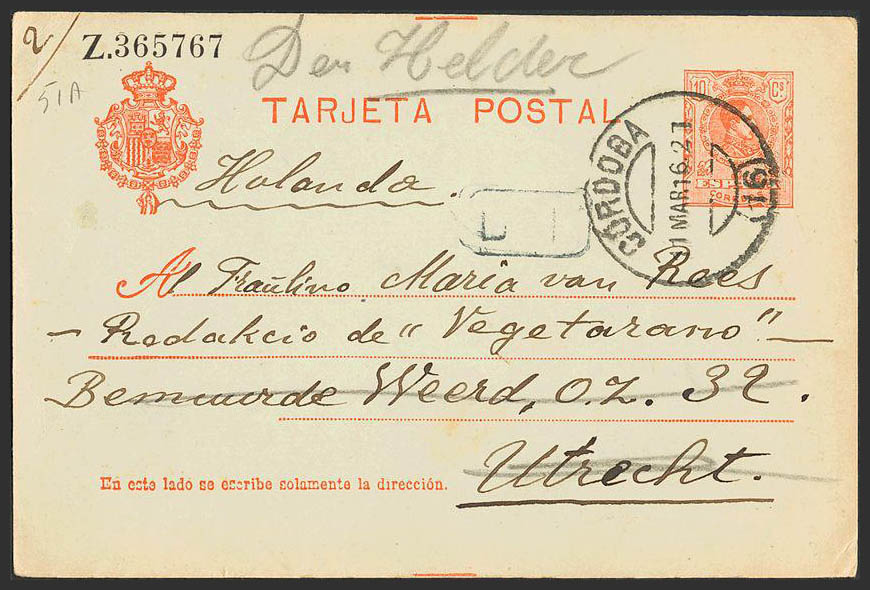 2/
Z.365767
Den Helder
51A
TARJETA POSTAL
10 Cs
ESPAÑA
CORREOS
CÓRDOBA
1 MAR 16 - 2 T
Holanda.
Al Fraŭlino Maria van Rees
— Redakcio de „Vegetarano" —
Bemuurde Weerd, O.Z. 32.
Utrecht.
En este lado se escribe solamente la dirección.